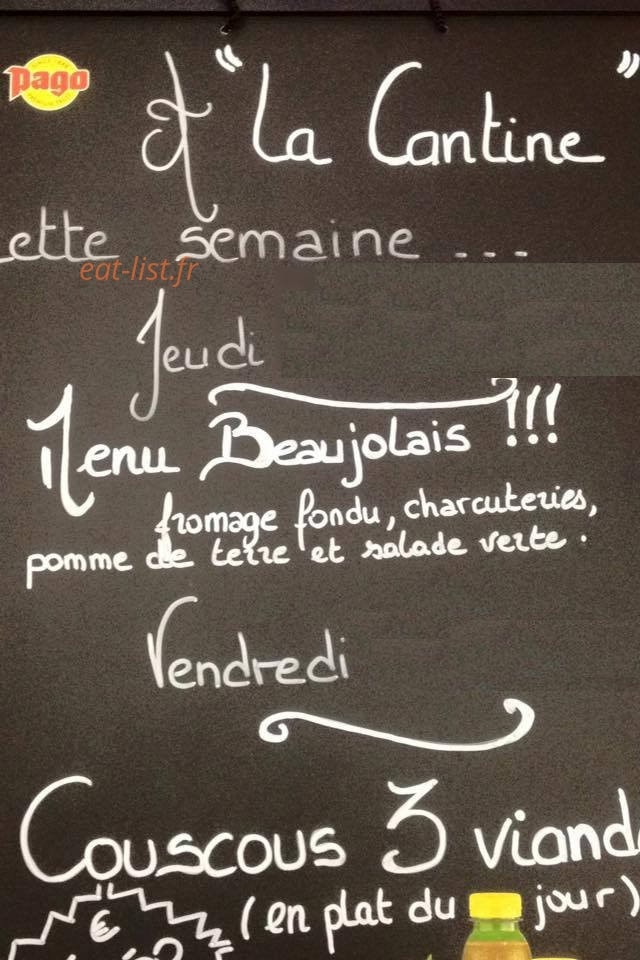 pago
A "La Cantine"
ette semaine ...
eat-list.fr
Jeudi
Menu Beaujolais !!!
fromage fondu, charcuteries,
pomme de terre et salade verte.
Vendredi
Couscous 3 viand
(en plat du jour)
€